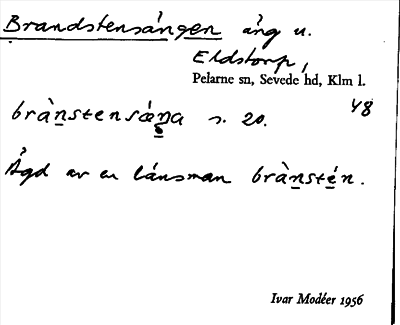 Brandstensången äng u.
Eldstorp,
Pelarne sn, Sevede hd, Klm l.
48
brànstensáŋa s. 20.
Ägd av en länsman brànstén.
Ivar Modéer 1956